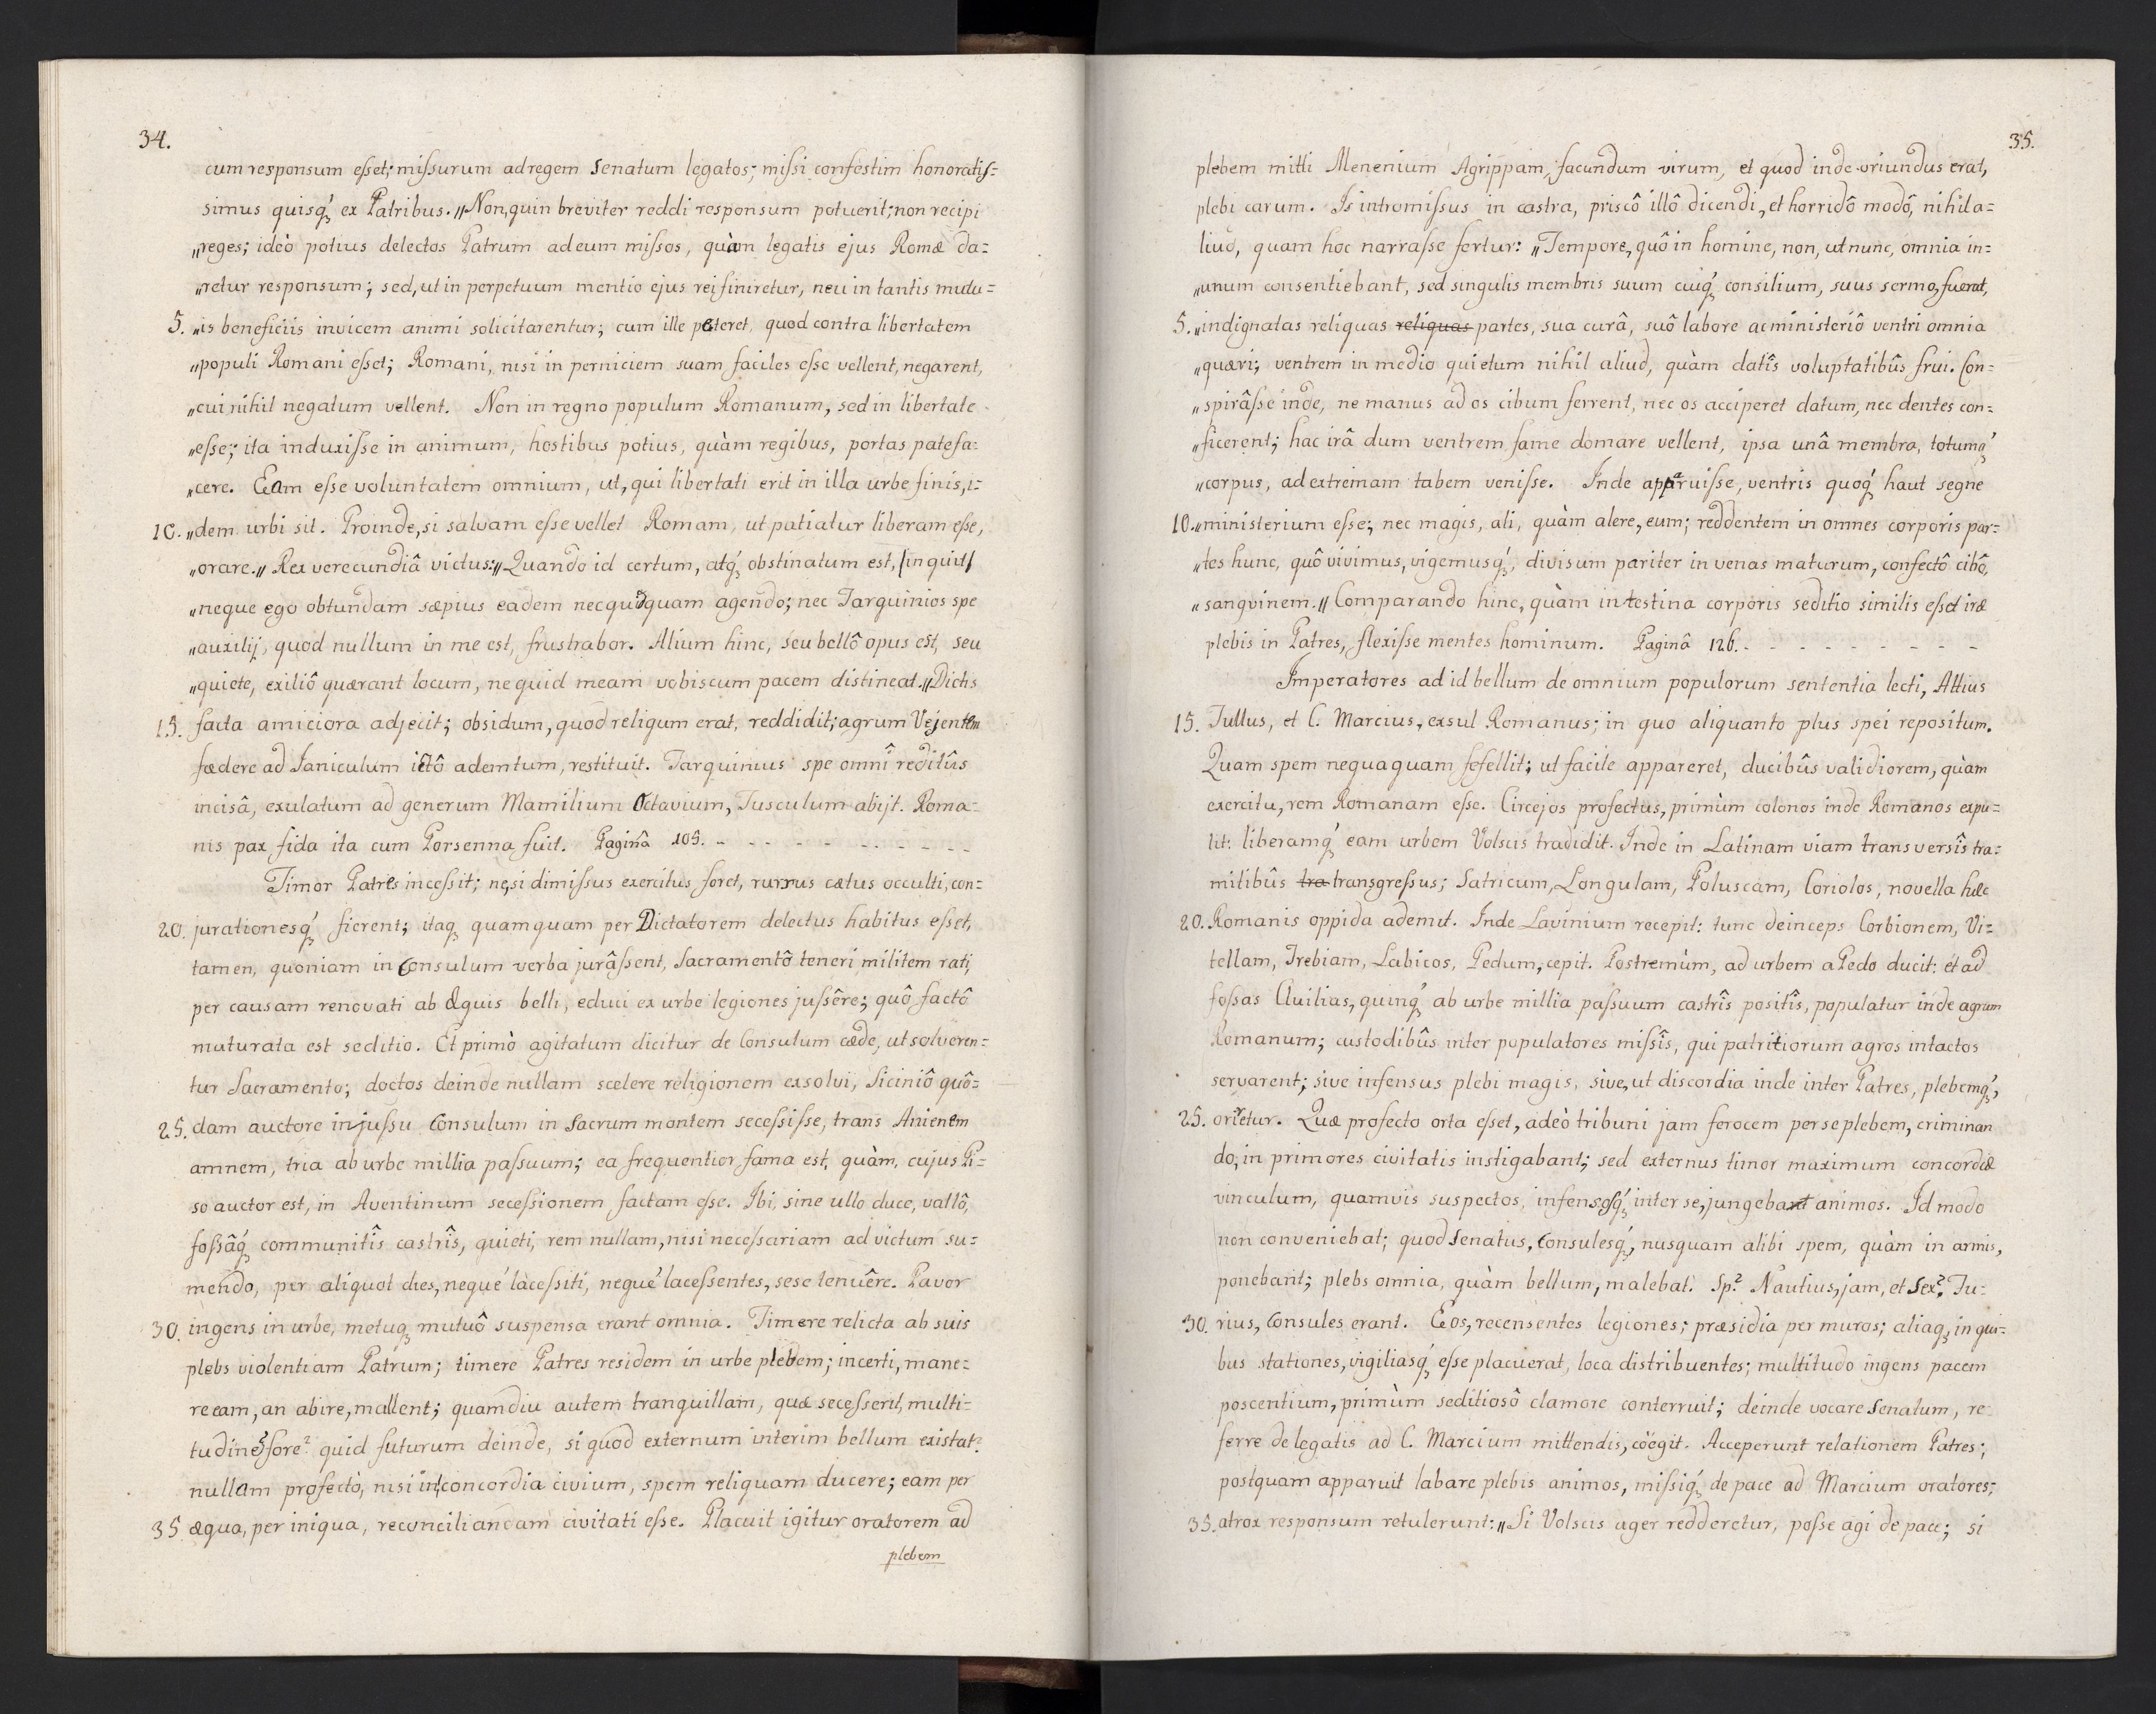 34.
cum responsum eſset; miſsurum ad regem Senatum legatos; miſsi confestim honoratiſ=
simus quisq́ꝫ ex Patribus. „Non, quin breviter reddi responsum potuerit; non recipi
„reges; ideò potius delectos Patrum ad eum miſsos, quàm legatis ejus Romæ da=
„retur responsum; sed, ut in perpetuum mentio ejus rei finiretur, neu in tantis mutu=
5. „is beneficiis invicem animi solicitarentur; cum ille peteret, quod contra libertatem
„populi Romani eſset; Romani, nisi in perniciem suam faciles eſse vellent, negarent,
„cui nihil negatum vellent. Non in regno populum Romanum, sed in libertate
„eſse; ita induxiſse in animum, hostibus potius, quàm regibus, portas patefa=
„cere. Eam eſse voluntatem omnium, ut, qui libertati erit in illa urbe finis, i=
10. „dem urbi sit. Proinde, si salvam eſse vellet Romam, ut patiatur liberam eſse,
„orare.„ Rex verecundiâ victus: „Quando id certum, atq́ꝫ obstinatum est, [inquit]
„neque ego obtundam sæpius eadem necquidquam agendo; nec Tarquinios spe
„auxilij, quod nullum in me est, frustrabor. Alium hinc, seu bellô opus est, seu
„quiete, exiliô quærant locum, nequid meam vobiscum pacem distineat.„ Dictis
15. facta amiciora adjecit; obsidum, quod reliqum erat, reddidit; agrum Vejentem
fœdere ad Janiculum ictô ademtum, restituit. Tarquinius spe omnî reditûs
incisâ, exulatum ad generum Mamilium Octavium, Tusculum abijt. Roma=
nis pax fida ita cum Porsenna fuit. Paginâ 105. - - - - - - - - - -
Timor Patres inceſsit; ne, si dimiſsus exercitus foret, rursus cœtus occulti, con=
20. jurationesq́ꝫ fierent; itaqꝫ quamquam per Dictatorem delectus habitus eſset,
tamen, quoniam in Consulum verba jurâſsent, Sacramentô teneri militem rati,
per causam renovati ab Æquis belli, educi ex urbe legiones juſsêre; quô factô
maturata est seditio. Et primò agitatum dicitur de Consulum cæde, ut solveren=
tur Sacramento; doctos deinde nullam scelere religionem exsolvi, Siciniô quô=
25. dam auctore injuſsu Consulum in Sacrum montem seceſsiſse, trans Anienem
amnem, tria ab urbe millia paſsuum; ea frequentior fama est, quàm, cujus Pi=
so auctor est, in Aventinum seceſsionem factam eſse. Ibi, sine ullo duce, vallô,
foſsâq́ꝫ communitîs castrîs, quieti, rem nullam, nisi neceſsariam ad victum su=
mendo, per aliquot dies, neque laceſsiti, neque laceſsentes, sese tenuêre. Pavor
30. ingens in urbe, metuqꝫ mutuô suspensa erant omnia. Timere relicta ab suis
plebs violentiam Patrum; timere Patres residem in urbe plebem; incerti, mane=
re eam, an abire, mallent; quamdiu autem tranquillam, quæ seceſserit, multi=
tudinē fore? quid futurum deinde, si quod externum interim bellum existat?
nullam profectò, nisi in concordia civium, spem reliquam ducere; eam per
35 æqua, per iniqua, reconciliandam civitati eſse. Placuit igitur oratorem ad
plebem
35.
plebem mitti Menenium Agrippam, facundum virum, et quod inde oriundus erat,
plebi carum. Is intromiſsus in castra, priscô illô dicendi, et horridô modô, nihil a=
liud, quam hoc narraſse fertur: „Tempore, quô in homine, non, ut nunc, omnia in=
„unum consentiebant, sed singulis membris suum cuiq́ꝫ consilium, suus sermo, fuerat,
5. „indignatas reliquas reliquas partes, sua curâ, suô labore ac ministeriô ventri omnia
„quæri; ventrem in medio quietum nihil aliud, quàm datîs voluptatibûs frui. Con=
„spirâſse inde, ne manus ad os cibum ferrent, nec os acciperet datum, nec dentes con=
„ficerent; hac irâ dum ventrem fame domare vellent, ipsa unâ membra, totumq́ꝫ
„corpus, ad extremam tabem veniſse. Inde apparuiſse, ventris quoq́ꝫ haut segne
10. „ministerium eſse; nec magis, ali, quàm alere, eum; reddentem in omnes corporis par=
„tes hunc, quô vivimus, vigemusq́ꝫ, divisum pariter in venas maturum, confectô cibô,
„sangvinem.„ Comparando hinc, quàm intestina corporis seditio similis eſset iræ
plebis in Patres, flexiſse mentes hominum. Paginâ 126. - - - - - - - - -
Imperatores ad id bellum de omnium populorum sententia lecti, Attius
15. Tullus, et C. Marcius, exsul Romanus; in quo aliquanto plus spei repositum.
Quam spem nequaquam fefellit; ut facile appareret, ducibûs validiorem, quàm
exercitu, rem Romanam eſse. Circejos profectus, primùm colonos inde Romanos expu=
lit: liberamq́ꝫ eam urbem Volscis tradidit. Inde in Latinam viam transversîs tra=
mitibûs tra transgreſsus; Satricum, Longulam, Poluscam, Coriolos, novella hæc
20. Romanis oppida ademit. Inde Lavinium recepit: tunc deinceps Corbionem, Vi=
tellam, Trebiam, Labicos, Pedum, cepit. Postremùm, ad urbem a Pedo ducit: et ad
foſsas Cluilias, quinq́ꝫ ab urbe millia paſsuum castrîs positîs, populatur inde agrum
Romanum; custodibûs inter populatores miſsîs, qui patritiorum agros intactos
servarent; sive infensus plebi magis, sive, ut discordia inde inter Patres, plebemq́ꝫ,
25. oriretur. Quæ profecto orta eſset, adeò tribuni jam ferocem per se plebem, criminan
do, in primores civitatis instigabant; sed externus timor maximum concordiæ
vinculum, quamvis suspectos, infensosq́ꝫ inter se, jungebant animos. Id modo
non conveniebat; quod Senatus, Consulesq́ꝫ, nusquam alibi spem, quàm in armis,
ponebant; plebs omnia, quàm bellum, malebat. Sp? Nautius, jam, et Sex? Fu=
30. rius, Consules erant. Eos, recensentes legiones; præsidia per muros; aliaqꝫ, in qui=
bus stationes, vigiliasq́ꝫ eſse placuerat, loca distribuentes; multitudo ingens pacem
poscentium, primùm seditiosô clamore conterruit; deinde vocare Senatum, re=
ferre de legatis ad C. Marcium mittendis, cöögit. Acceperunt relationem Patres;
postquam apparuit labare plebis animos, miſsiq́ꝫ de pace ad Marcium oratores;
35. atrox responsum retulerunt: „Si Volscis ager redderetur, poſse agi de pace; si